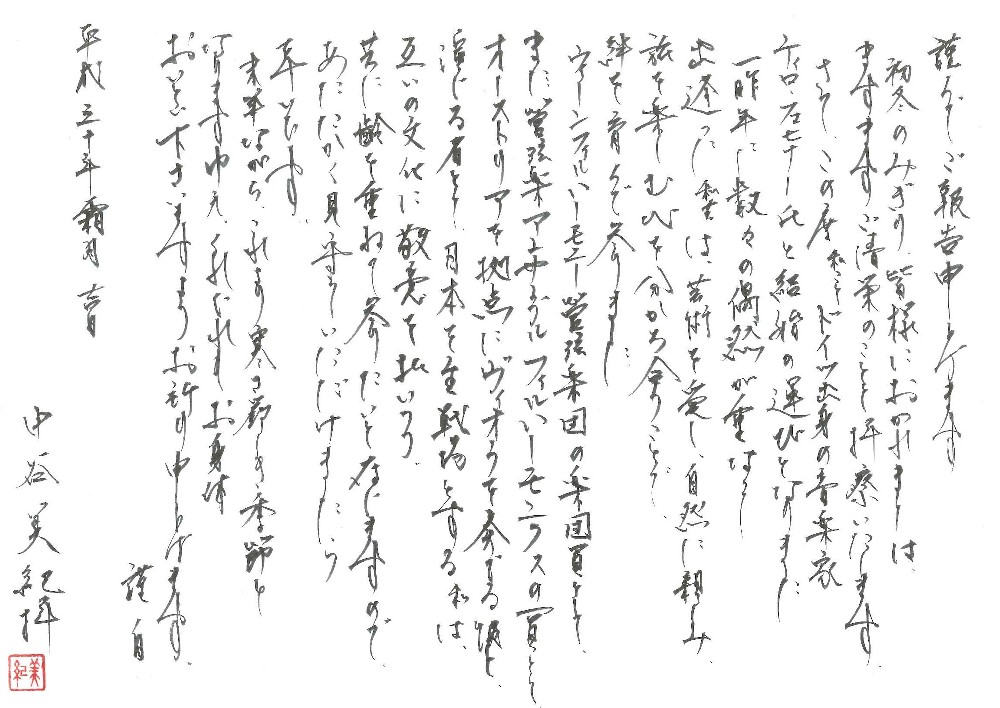 謹んでご報告申し上げます
初冬のみぎり、皆様におかれましては、
ますますご清栄のことと拝察いたします。
さて、この度 私こと ドイツ出身の音楽家
ティロ・フェヒナー氏と結婚の運びとなりました。
一昨年に数々の偶然が重なって
出逢った私共は芸術を愛し、自然に親しみ、
旅を楽しむ心を分かち合うことで、
絆を育んで参りました。
ウィーンフィルハーモニー管弦楽団の楽団員として、
また、管弦楽アンサンブル フィルハーモニクスの一員として
オーストリアを拠点にヴィオラを奏する彼と、
演じる者として日本を主戦場とする私は、
互いの文化に敬意を払いつつ、
共に齢を重ねて参りたいと存じますので、
あたたかく見守っていただけましたら
幸いです。
末筆ながら、これより寒さ厳しき季節と
なります故、くれぐれもお身体
おいとい下さいますようお祈り申し上げます。
謹白
平成三十年霜月 吉日
中谷美紀拝
美紀